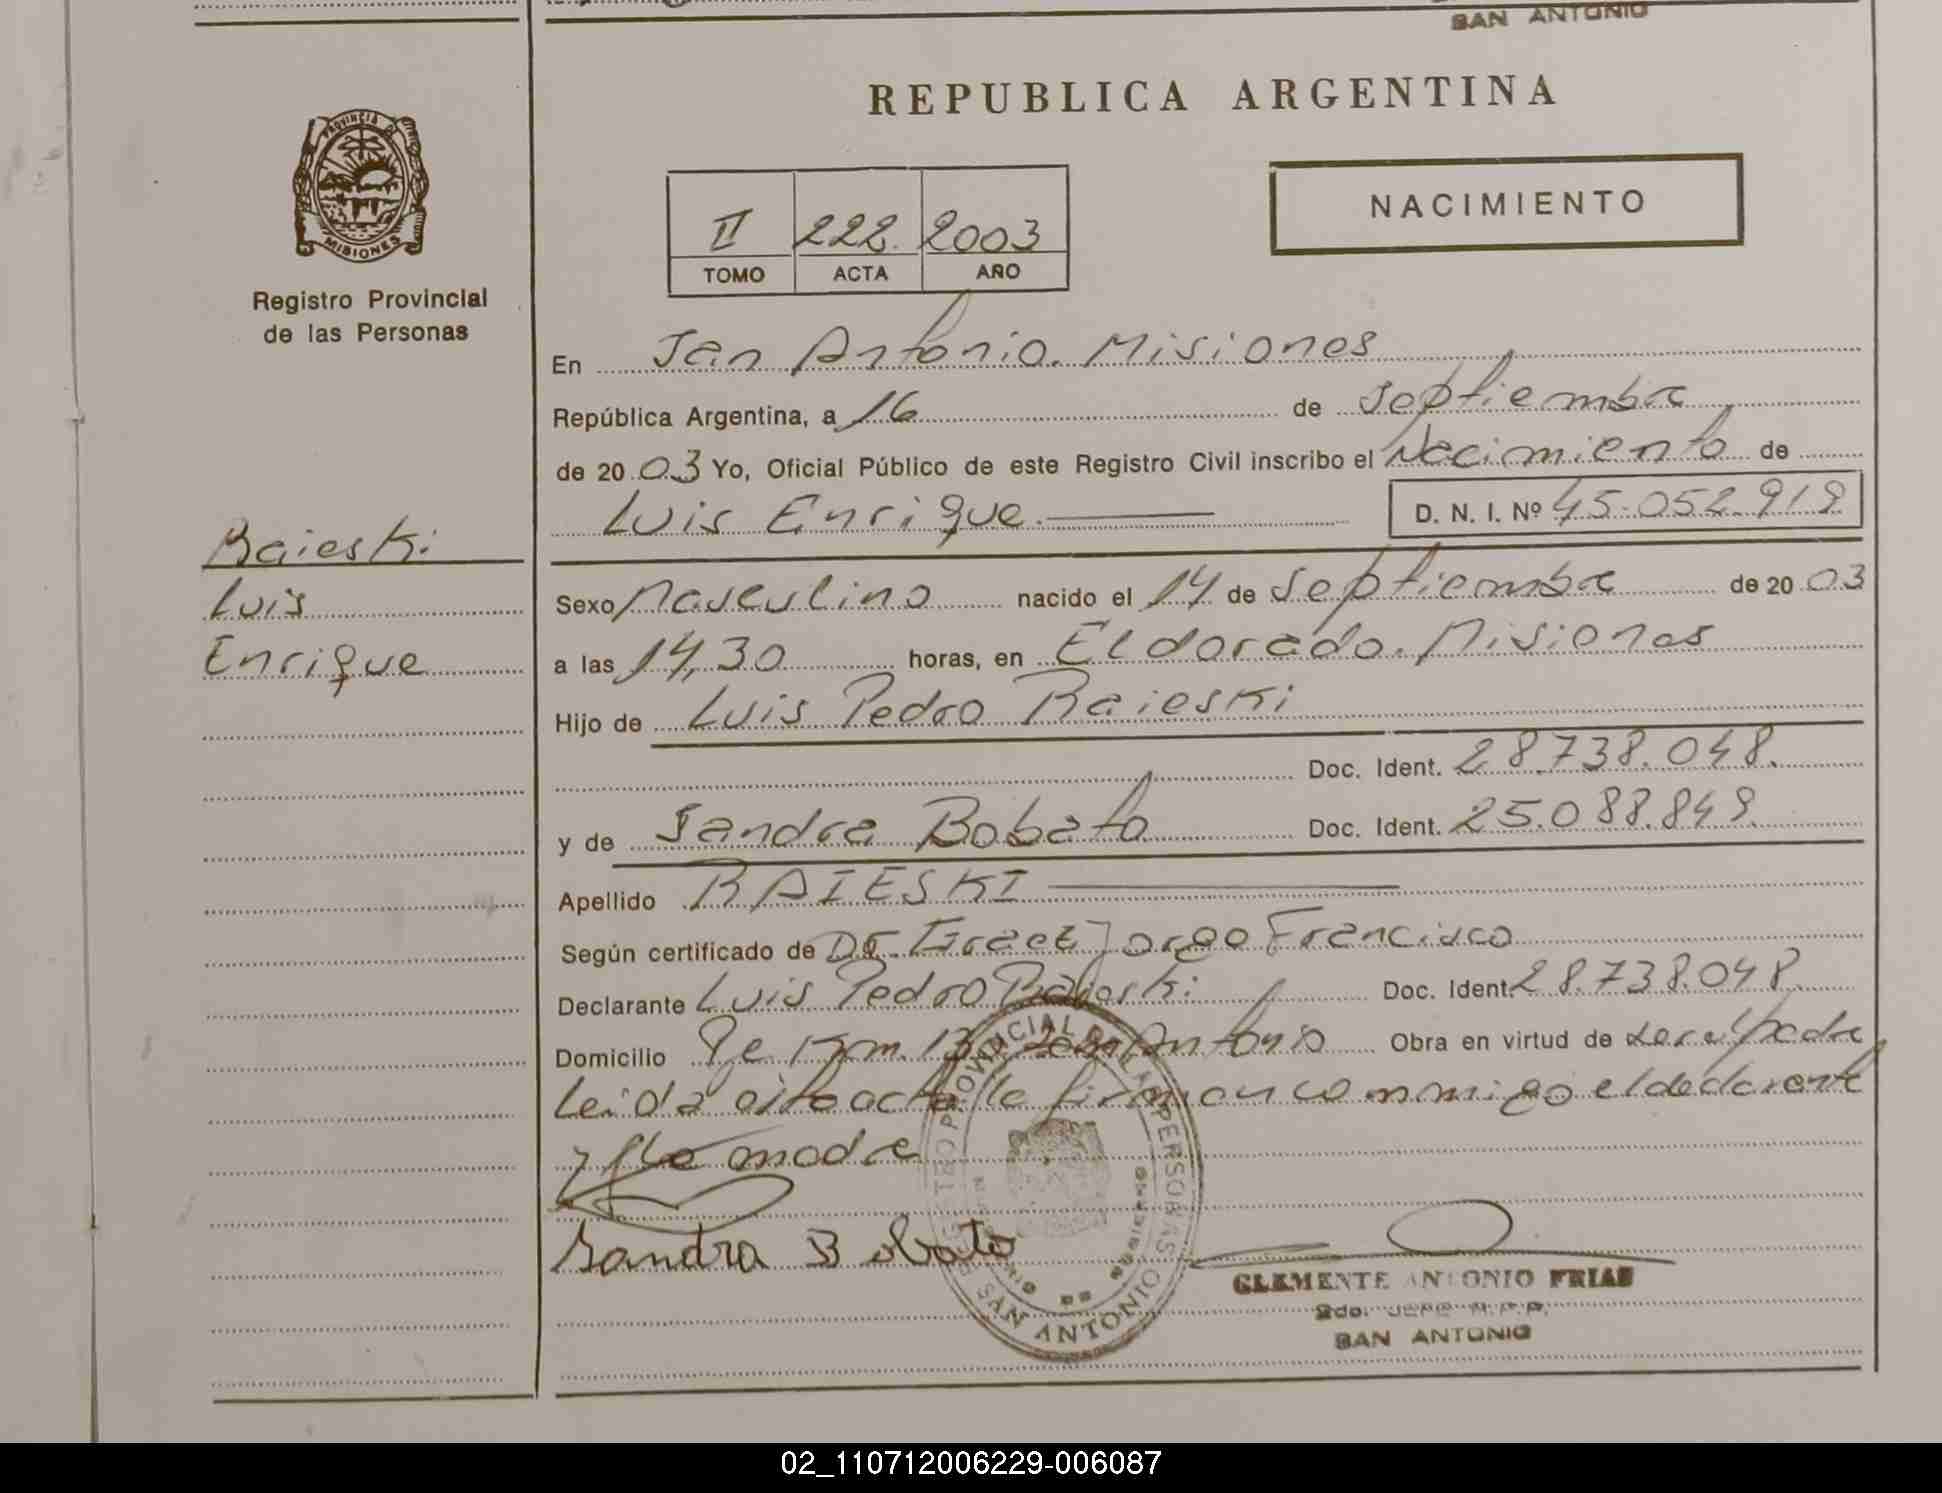 SAN ANTONIO
REPUBLICA ARGENTINA
PROVINCIA DE
MISIONES
Registro Provincial
de las Personas
II 222. 2003
TOMO ACTA AÑO
NACIMIENTO
En San Antonio. Misiones
República Argentina, a 16 de Septiembre
de 2003 Yo, Oficial Público de este Registro Civil inscribo el Nacimiento de
Luis Enrique.
D. N. I. Nº 45.052.919
Raieski
Luis
Enrique
Sexo Masculino nacido el 14 de Septiembre de 2003
a las 14,30 horas, en Eldorado. Misiones
Hijo de Luis Pedro Raieski
Doc. Ident. 28.738.048.
y de Sandra Bobato Doc. Ident. 25.088.849.
Apellido RAIESKI
Según certificado de Dr. Jorge Francisco
Declarante Luis Pedro Raieski Doc. Ident. 28.738.048.
Domicilio Km. 13 San Antonio Obra en virtud de
Leida acta la firman conmigo el declarante
y la madre
Sandra Bobato
REGISTRO PROVINCIAL DE LAS PERSONAS
SAN ANTONIO
CLEMENTE ANTONIO FRIAS
2do. JEFE R.P.P.
SAN ANTONIO
02_110712006229-006087